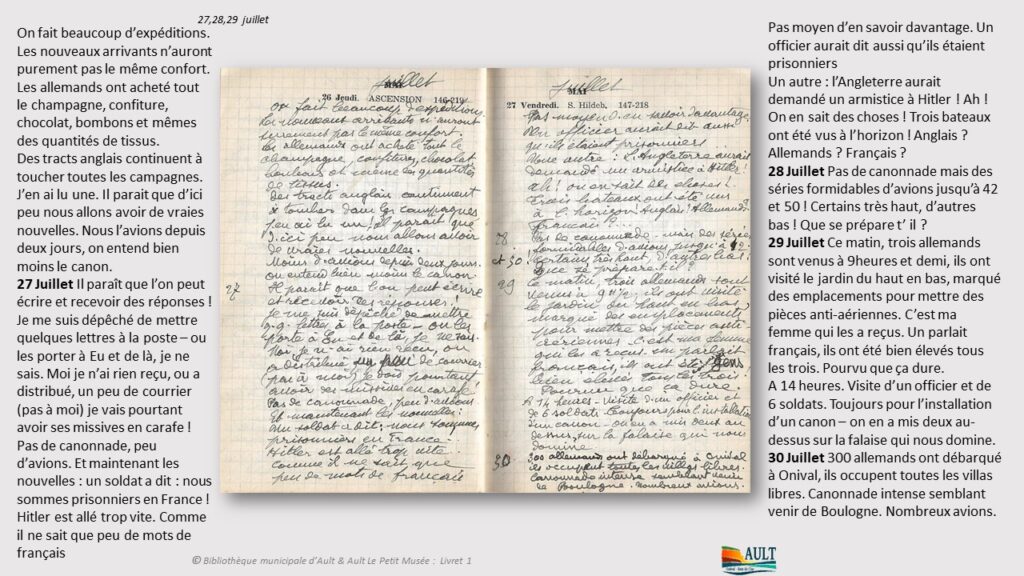 27,28,29 juillet
On fait beaucoup d’expéditions.
Les nouveaux arrivants n’auront
purement pas le même confort.
Les allemands ont acheté tout
le champagne, confiture,
chocolat, bombons et mêmes
des quantités de tissus.
Des tracts anglais continuent à
toucher toutes les campagnes.
J’en ai lu une. Il parait que d’ici
peu nous allons avoir de vraies
nouvelles. Nous l’avions depuis
deux jours, on entend bien
moins le canon.
27 Juillet Il paraît que l’on peut
écrire et recevoir des réponses !
Je me suis dépêché de mettre
quelques lettres à la poste – ou
les porter à Eu et de là, je ne
sais. Moi je n’ai rien reçu, ou a
distribué, un peu de courrier
(pas à moi) je vais pourtant
avoir ses missives en carafe !
Pas de canonnade, peu
d’avions. Et maintenant les
nouvelles : un soldat a dit : nous
sommes prisonniers en France !
Hitler est allé trop vite. Comme
il ne sait que peu de mots de
français
juillet
MAI
26 Jeudi. ASCENSION 146-219
On fait beaucoup d'expéditions.
Les nouveaux arrivants n'auront
sûrement pas le même confort.
Les allemands ont acheté tout le
champagne, confitures, chocolat
bonbons et même des quantités
de tissus.
Des tracts anglais continuent
à tomber dans les campagnes
j'en ai lu un. Il paraît que
d'ici peu nous allons avoir
de vraies nouvelles.
Moins d'avions depuis deux jours.
on entend bien moins le canon.
27 Il paraît que l'on peut écrire
et recevoir des réponses !
Je me suis dépêché de mettre
q.q. lettres à la poste - ou les
porte à Eu et de là, je ne sais.
Moi, je n'ai rien reçu, on
a distribué un peu de courrier
(pas à moi) je dois pourtant
avoir des missives en carafe !
Pas de canonnade, peu d'avions
Et maintenant les nouvelles :
un soldat a dit : nous sommes
prisonniers en France.
Hitler est allé trop vite.
comme il ne sait que
peu de mots de français
juillet
MAI
27 Vendredi. S. Hildeb. 147-218
Pas moyen d'en savoir davantage.
Un officier aurait dit aussi
qu'ils étaient prisonniers...
Une autre : L'Angleterre aurait
demandé un armistice à Hitler !
Ah ! on en sait des choses !
Trois bateaux ont été vus
à l'horizon Anglais ? Allemands ?
français ?...
28 Pas de canonnade - mais des séries
formidables d'avions jusqu'à 42
et 50 ! certains très haut, d'autres bas !
que se prépare-t-il ?
29 Ce matin, trois allemands sont
venus à 9h½, ils ont visité
le jardin du haut en bas,
marqué des emplacements
pour mettre des pièces anti-
aériennes. C'est ma femme
qui les a reçus. Un parlait
français, ils ont été
bien élevés tous les trois.
Pourvu que ça dure.
A 14 heures - Visite d'un officier et
de 6 soldats. Toujours pour l'installation
d'un canon - on en a mis deux au-
dessus, sur la falaise qui nous
domine.
30 300 allemands ont débarqué à Onival
ils occupent toutes les villas libres.
Canonnade intense semblant venir
de Boulogne. Nombreux avions.
Pas moyen d’en savoir davantage. Un
officier aurait dit aussi qu’ils étaient
prisonniers
Un autre : l’Angleterre aurait
demandé un armistice à Hitler ! Ah !
On en sait des choses ! Trois bateaux
ont été vus à l’horizon ! Anglais ?
Allemands ? Français ?
28 Juillet Pas de canonnade mais des
séries formidables d’avions jusqu’à 42
et 50 ! Certains très haut, d’autres
bas ! Que se prépare t’ il ?
29 Juillet Ce matin, trois allemands
sont venus à 9heures et demi, ils ont
visité le jardin du haut en bas, marqué
des emplacements pour mettre des
pièces anti-aériennes. C’est ma
femme qui les a reçus. Un parlait
français, ils ont été bien élevés tous
les trois. Pourvu que ça dure.
A 14 heures. Visite d’un officier et de
6 soldats. Toujours pour l’installation
d’un canon – on en a mis deux au-
dessus sur la falaise qui nous domine.
30 Juillet 300 allemands ont débarqué
à Onival, ils occupent toutes les villas
libres. Canonnade intense semblant
venir de Boulogne. Nombreux avions.
© Bibliothèque municipale d’Ault & Ault Le Petit Musée : Livret 1
AULT